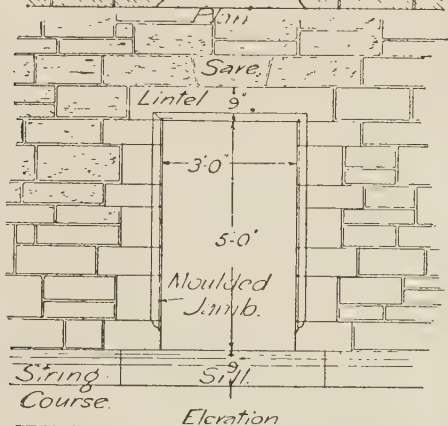 Plan
Save.
Lintel 9"
3'-0"
5-0"
Moulded
Jamb.
9"
String Sill.
Course.
Elevation